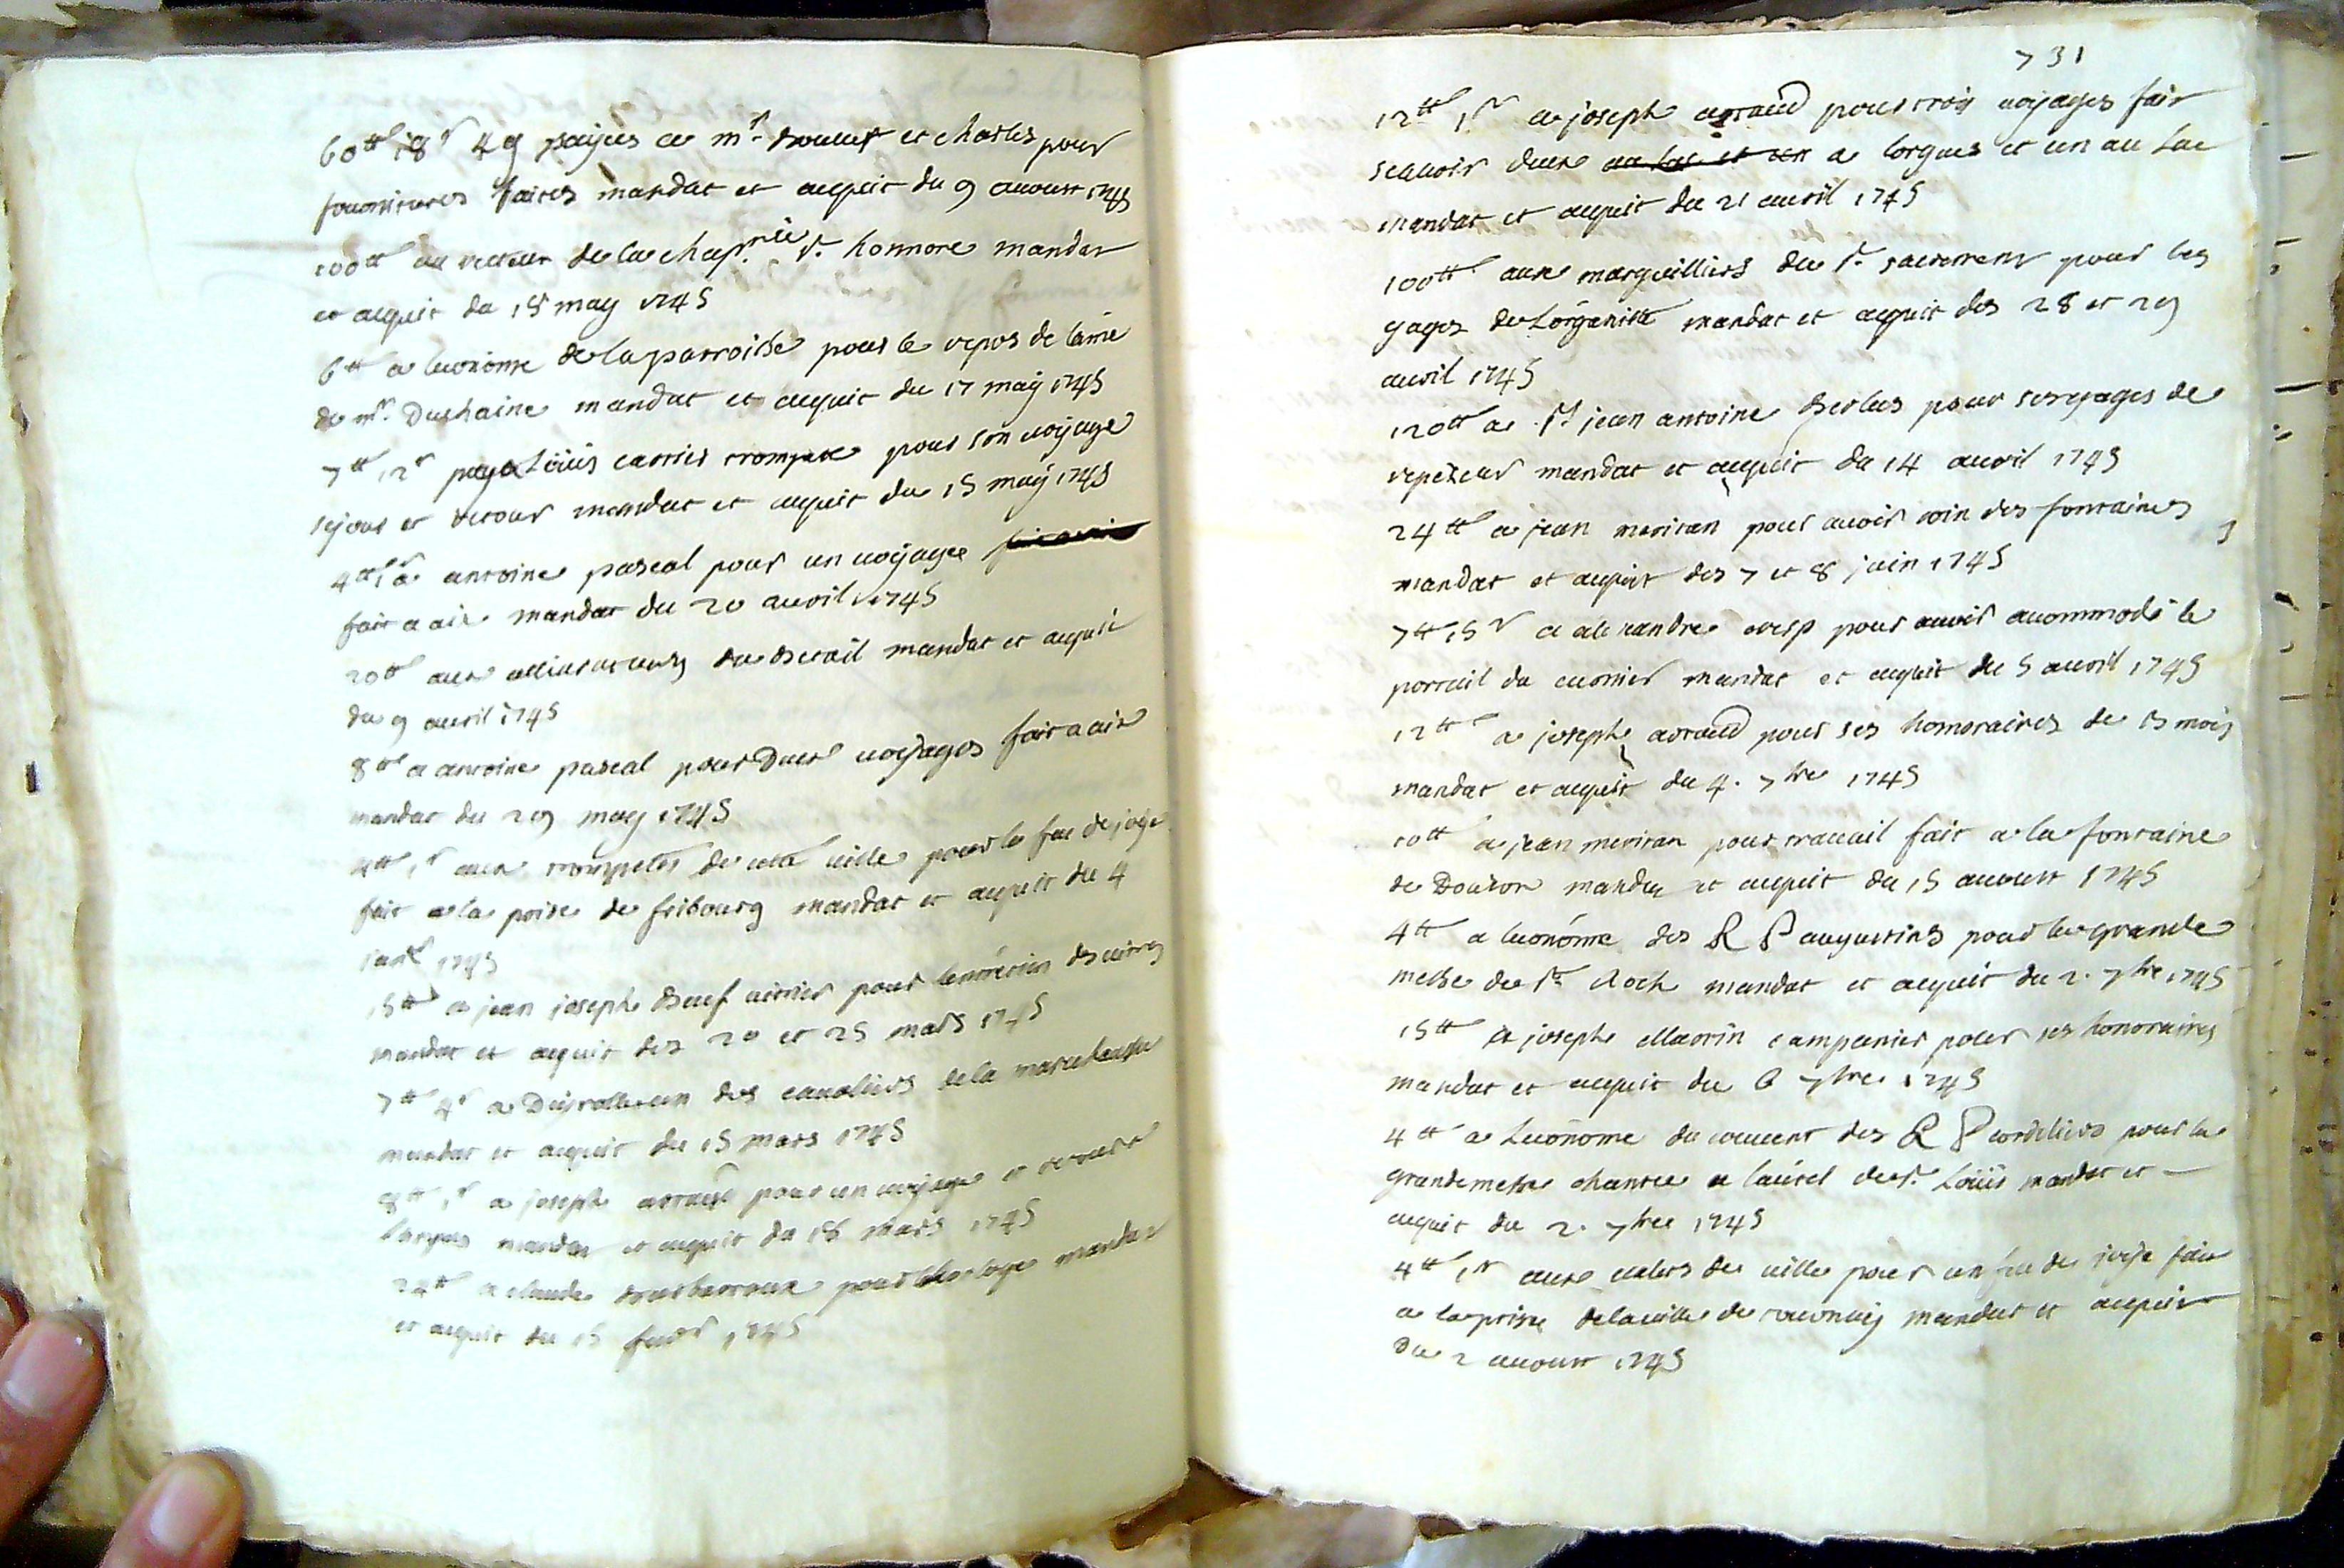 60tt 18s 4d payées a mr. et charles pour
fournitures faites mandat et acquit du 9 avoust 1745
100tt au recteur de la chap.nie st. honnoré mandat
et acquit du 15 may 1745
6tt a leconôme de la parroisse pour le repos de lame
de mr. Duchaine mandat et acquit du 17 may 1745
7tt 12s payé a Loüis carrier trompete pour son voyage
sejour et retour mandat et acquit du 15 may 1745
4tt 1s a antoine pascal pour un voyage
fait a aix mandat du 20 avril 1745
20tt aux du detail mandat et acquit
du 9 avril 1745
8tt a antoine pascal pour deux voyages fait a aix
mandat du 29 may 1745
4tt 1s aux trompetes de cette ville pour le feu de joye
fait a la prise de fribourg mandat et acquit du 4
janr 1745
15tt a jean joseph vitrier pour lentretien des vitres
mandat et acquit des 20 et 25 mars 1745
7tt 4s a un des cavaliers de la marechaussee
mandat et acquit du 15 mars 1745
8tt 1s a joseph arraud pour un voyage et retour a
lorgues mandat et acquit du 18 mars 1745
24tt a claude pour lhorloge mandat
et acquit du 15 fevr 1745
731
12tt 1s a joseph arraud pour trois voyages fait
scavoir deux au luc et un a lorgues et un au Luc
mandat et acquit du 21 avril 1745
100tt aux marguilliers du st. sacrement pour les
gages de Lorganiste mandat et acquit des 28 et 29
avril 1745
120tt a sr jean antoine pour ses gages de
repeteur mandat et acquit du 14 avril 1745
24tt a jean meritan pour avoir soin des fontaines
mandat et acquit des 7 et 8 juin 1745
7tt 15s a alexandre crisp pour avoir accommodé le
portail du mandat et acquit du 5 avril 1745
12tt a joseph arraud pour ses homoraires de 15 mois
mandat et acquit du 4. 7bre 1745
10tt a jean meritan pour travail fait a la fontaine
de mandat et acquit du 15 avoust 1745
4tt a leconóme des R P augustins pour la grande
messe de st Roch mandat et acquit du 2. 7bre 1745
15tt a joseph Maurin campanier pour ses honoraires
mandat et acquit du 6 7bre 1745
4tt a Leconome du couvent des R P cordeliers pour la
grande messe chantée a lautel de st. Loüis mandat et
acquit du 2. 7bre 1745
4tt 1s aux valets de ville pour un feu de joye fait
a la prise de la ville de tournay mandat et acquit
du 2 avoust 1745